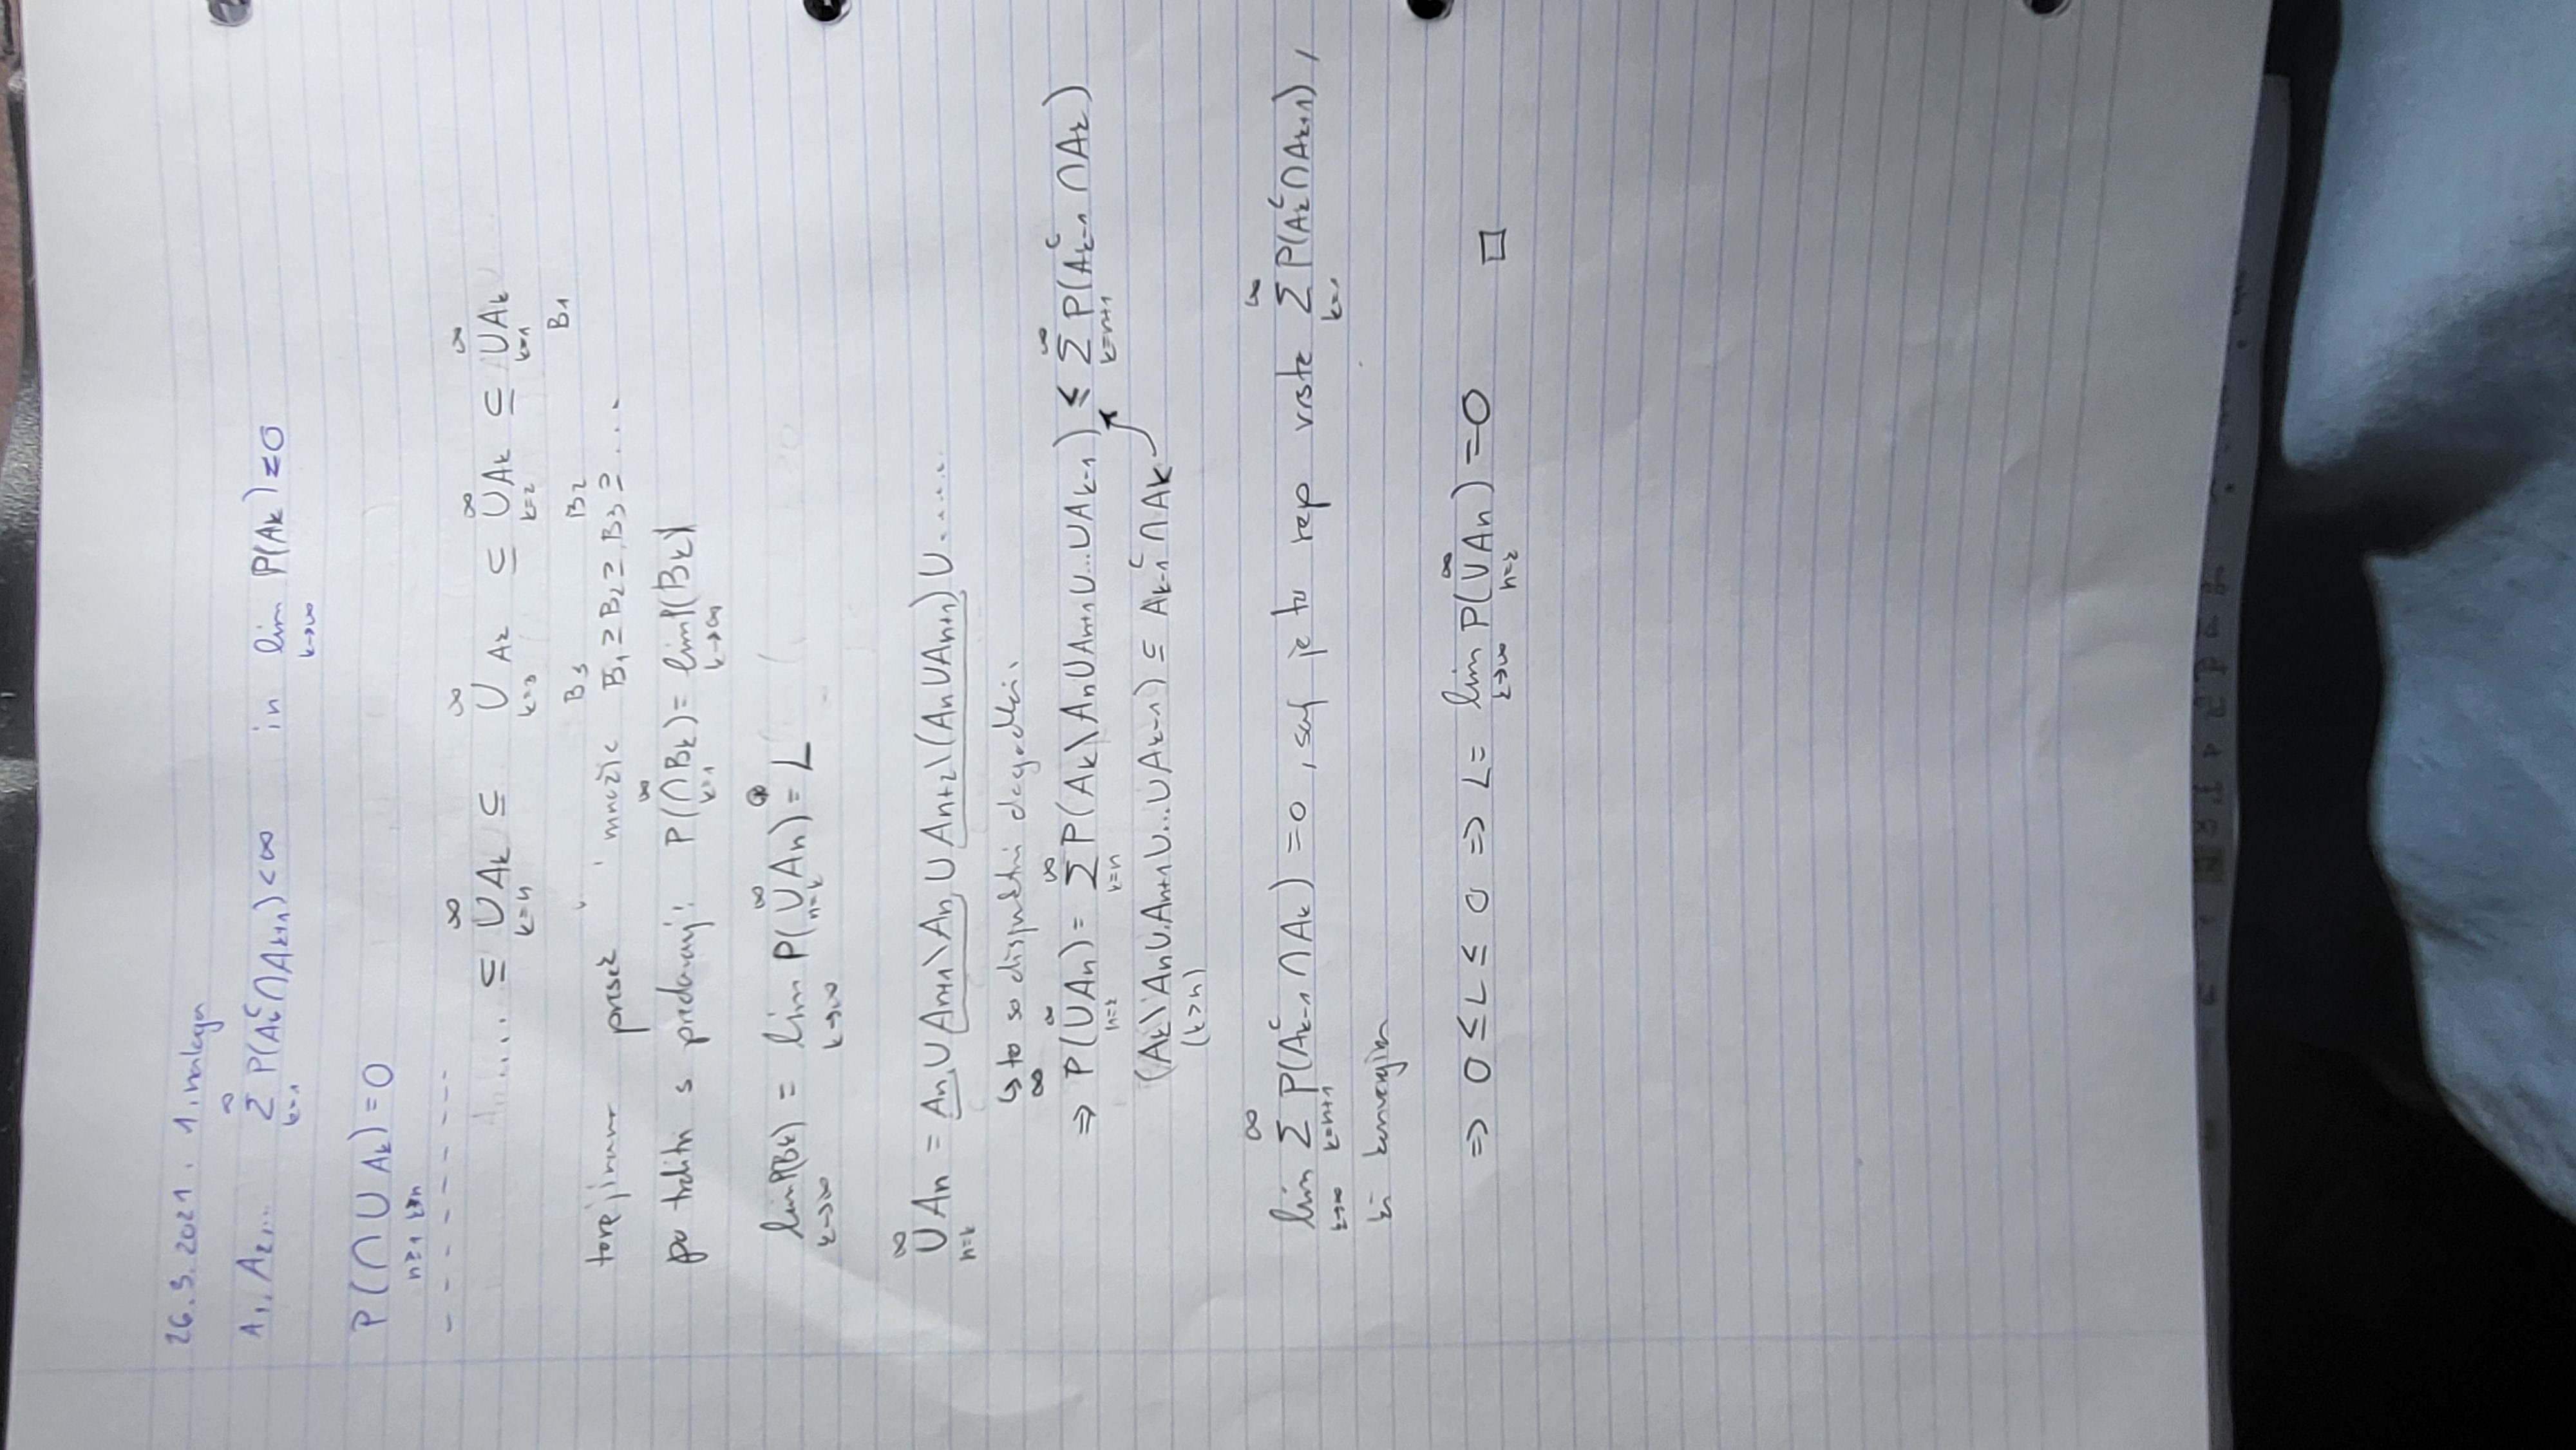 26.3.2021. 1. naloga
A₁, A₂,... ∑_{k=1}^∞ P(A_k^c ∩ A_{k+1}) < ∞ in lim_{k→∞} P(A_k) = 0
P(∩_{n≥1} ∪_{k≥n} A_k) = 0
.... ⊆ ∪_{k=n}^∞ A_k ⊆ ∪_{k=3}^∞ A_k ⊆ ∪_{k=2}^∞ A_k ⊆ ∪_{k=1}^∞ A_k
B₃ B₂ B₁
torej imamo presek množic B₁ ⊇ B₂ ⊇ B₃ ⊇ ...
po trditvi s predavanj: P(∩_{k=1}^∞ B_k) = lim_{k→∞} P(B_k)
lim_{k→∞} P(B_k) = lim_{k→∞} P(∪_{n=k}^∞ A_n) = L
∪_{n=k}^∞ A_n = A_n ∪ A_{n+1} \ A_n ∪ A_{n+2} \ (A_n ∪ A_{n+1}) ∪ ......
↳ to so disjunktni dogodki.
⇒ P(∪_{n=k}^∞ A_n) = ∑_{k=n}^∞ P(A_k \ A_n ∪ A_{n+1} ∪ ... ∪ A_{k-1}) ≤ ∑_{k=n+1}^∞ P(A_{k-1}^c ∩ A_k)
(A_k \ A_n ∪ A_{n+1} ∪ ... ∪ A_{k-1}) ⊆ A_{k-1}^c ∩ A_k
(k>n)
lim_{k→∞} ∑_{k=n+1}^∞ P(A_{k-1}^c ∩ A_k) = 0, saj je to rep vrste ∑_{k=1}^∞ P(A_k^c ∩ A_{k+1}),
ki konvergira
⇒ 0 ≤ L ≤ 0 ⇒ L = lim_{k→∞} P(∪_{n=k}^∞ A_n) = 0 □